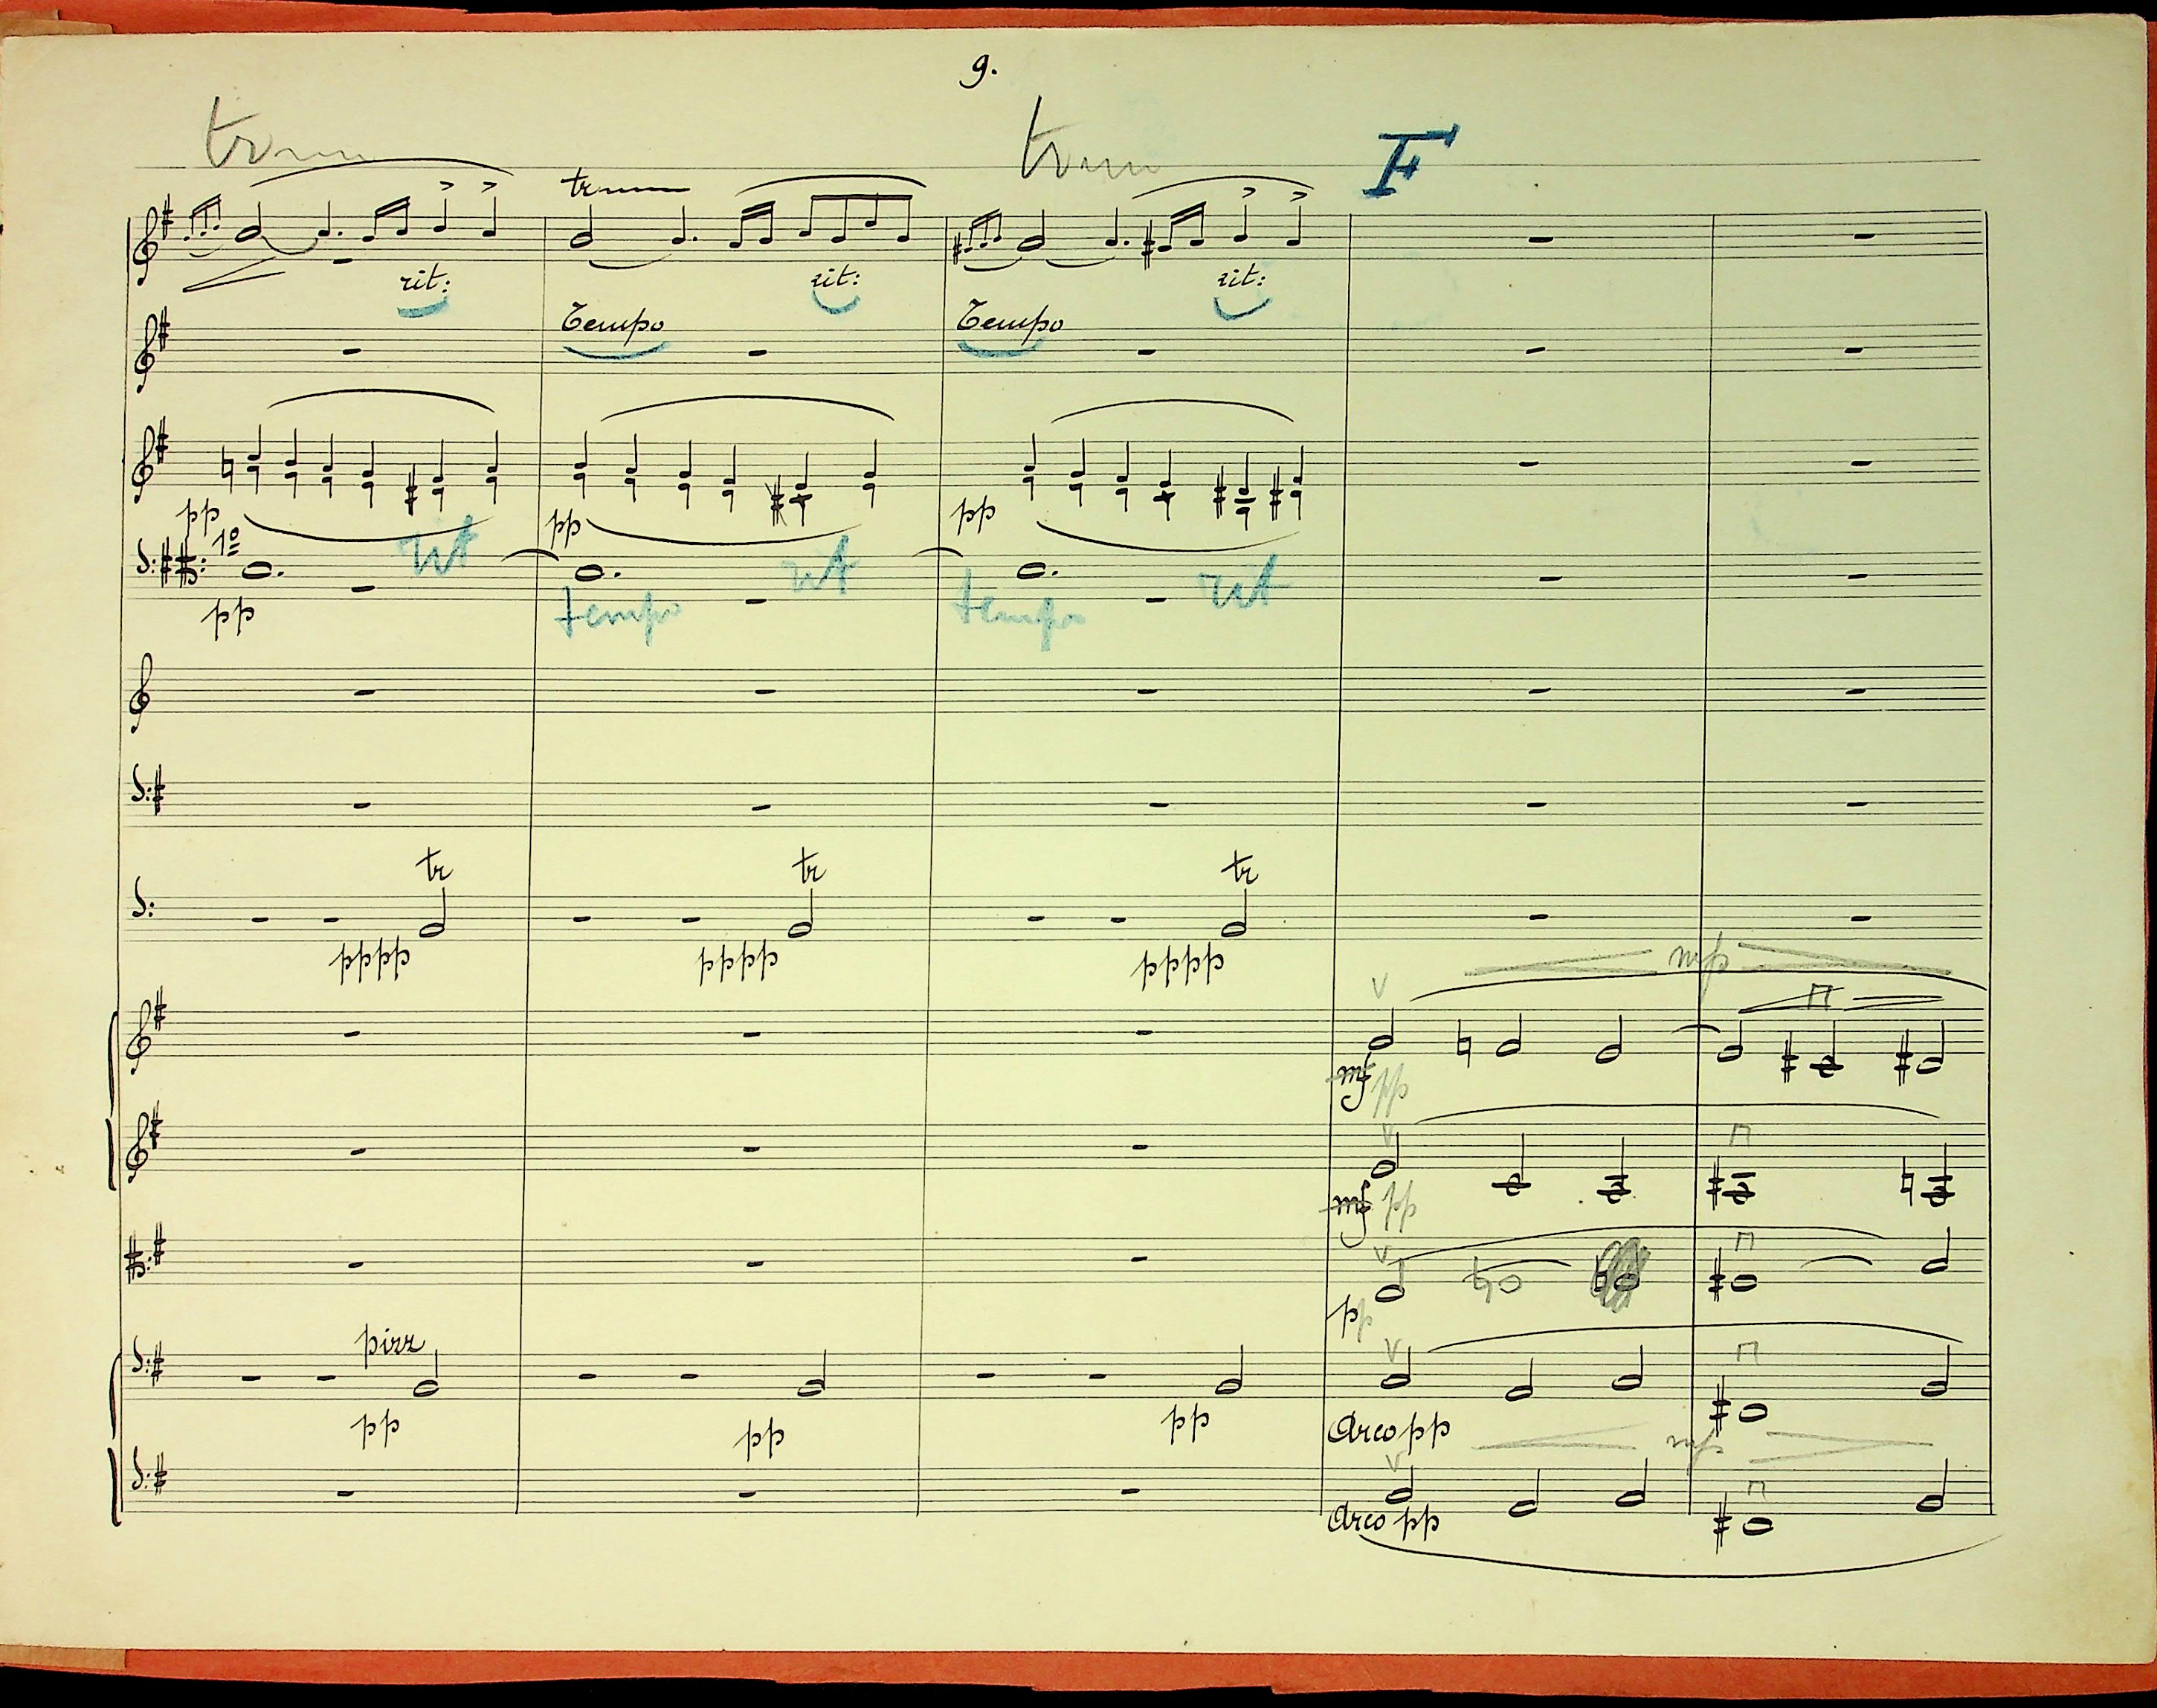 9.
tr tr F
tr
rit: rit: rit:
Tempo Tempo
pp pp pp
1º rit rit rit
pp tempo tempo
tr tr tr
pppp pppp pppp
mp
mf pp
mf pp
pp
pizz
pp pp pp Arco pp
mp
Arco pp